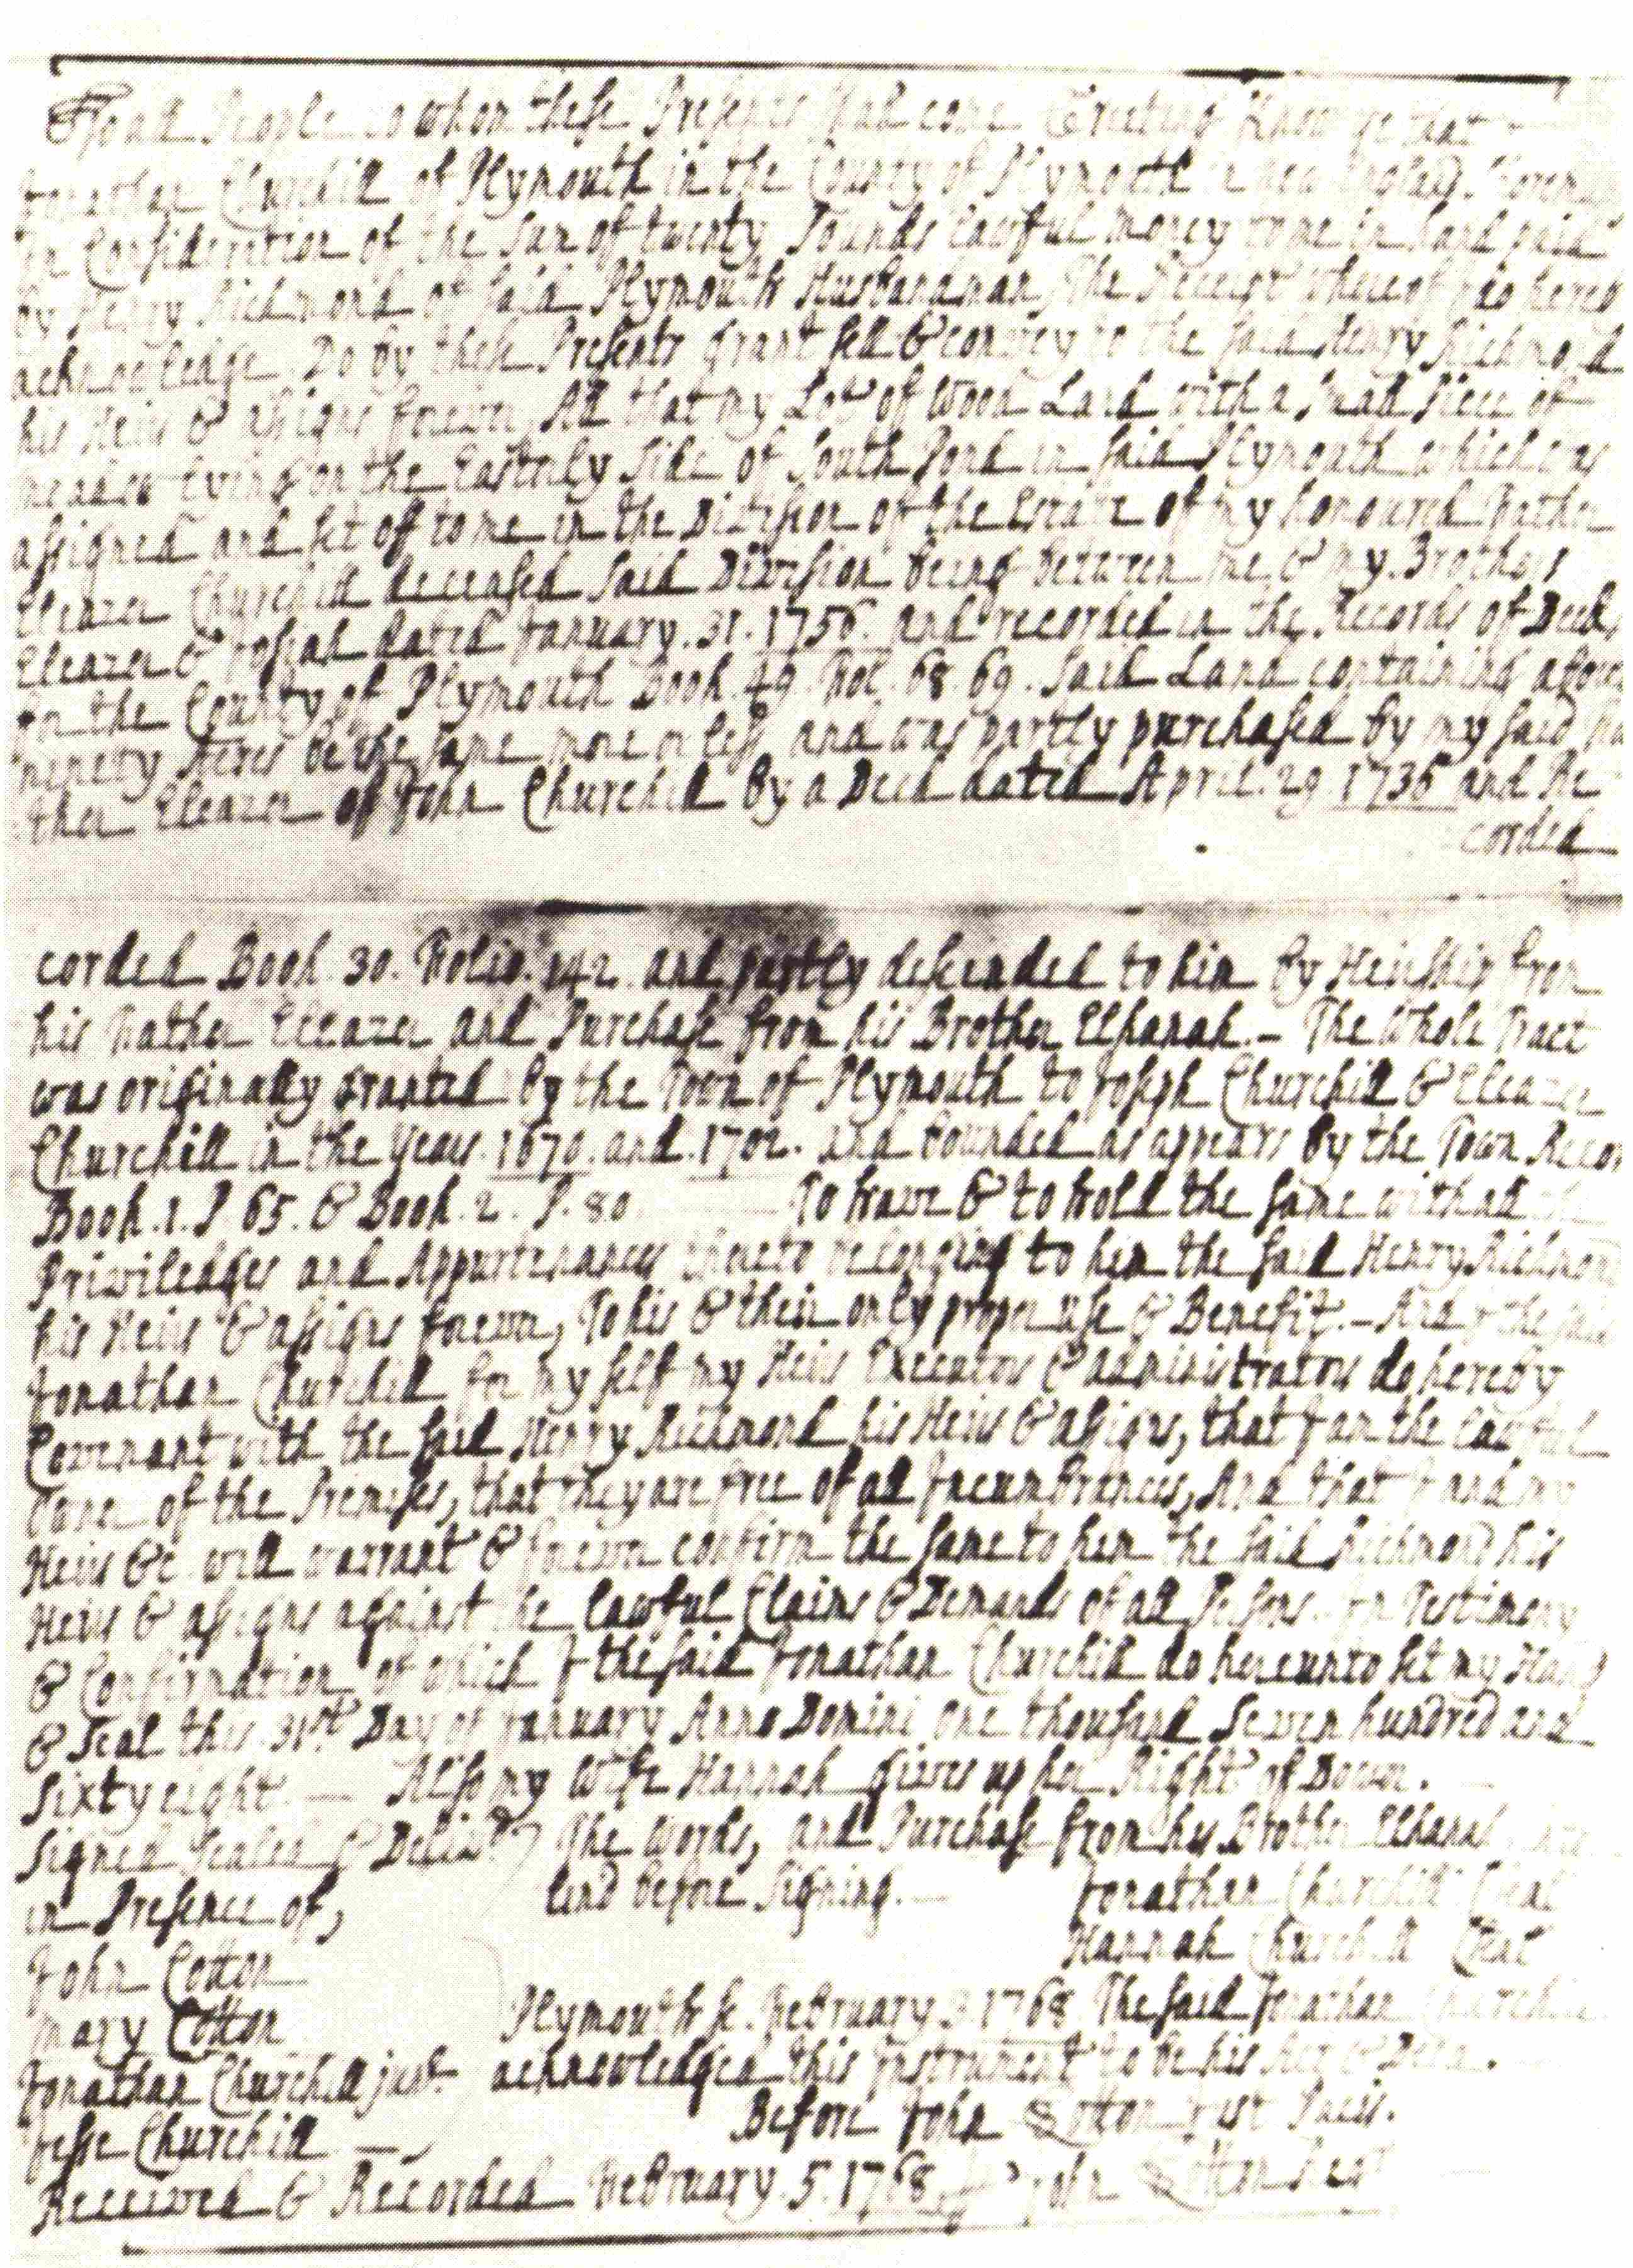 To all People to whom these Presents shall come Greeting Know ye that
Jonathan Churchill of Plymouth in the County of Plymouth
In Consideration of the Sum of twenty Pounds lawful money to me in hand paid
by Henry Richmond of said Plymouth Husbandman, The Receipt whereof I do hereby
acknowledge Do by these Presents grant sell & convey to the said Henry Richmond
his Heirs & assigns forever All that my Lot of Wood Land with a small Piece of
meadow lying on the Easterly Side of South Pond in said Plymouth which was
assigned and set off to me in the Division of the Estate of my honoured Father
Eleazer Churchill deceased said Division being between me & my Brothers
Eleazer & Josiah dated January. 31. 1756. and recorded in the Records of Deeds
for the County of Plymouth Book 49. Fol. 68. 69. Said Land containing about
ninety Acres be the same more or less and was partly purchased by my said Fa
ther Eleazer of John Churchill by a Deed dated April. 29 1736 and Re
corded
corded Book. 30. Folio. 142. and partly descended to him by Heirship from
his Father Eleazer and Purchase from his Brother Elkanah. – The Whole Tract
was originally granted by the Town of Plymouth to Joseph Churchill & Eleazer
Churchill in the Years. 1670. and. 1702. and bounded as appears by the Town Recor
Book. 1. P 65. & Book. 2. P. 80 To have & to hold the same with all the
Priviledges and Appurtenances thereto belonging to him the said Henry Richmond
his Heirs & assigns forever, To his & their only proper use & Benefit. – And I the said
Jonathan Churchill for my self my Heirs Executors & administrators do hereby
Covenant with the said Henry Richmond his Heirs & assigns, that I am the lawful
Owner of the Premises, that they are free of all Incumbrances, And that I and my
Heirs &c will warrant & forever confirm the same to him the said Richmond his
Heirs & assigns against the lawful Claims & Demands of all Persons. In Testimony
& Confirmation of which I the said Jonathan Churchill do hereunto set my Hand
& Seal this 31st Day of January Anno Domini one thousand Seven hundred and
Sixty eight — Also my Wife Hannah gives up her Right of Dower. —
Signed Sealed & Delivd The Words, and Purchase from his Brother Elkanah
in Presence of, lind before Signing. — Jonathan Churchill Seal
John Cotton Hannah Churchill Seal
Mary Cotton Plymouth ss. February. 3. 1768 The said Jonathan Churchill
Jonathan Churchill junr. acknowledged this Instrument to be his Act & Deed.
Jesse Churchill — Before John Cotton Just Pacis.
Received & Recorded February. 5. 1768. John Cotton